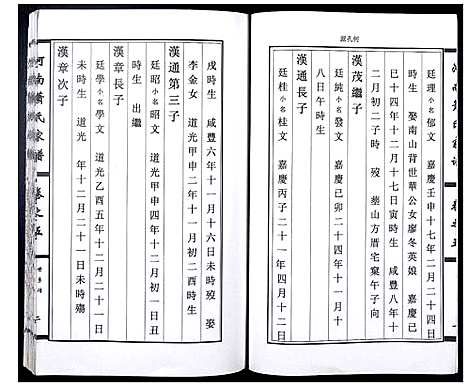 何孔源
廷理小名郁文 嘉慶壬申十七年二月二十四日
時生 娶南山背世華公女廖冬英娘 嘉慶
巳十四年十二月十七日寅時生 咸豐八年十
月初三日 時歿 塟山方厝宅窠午子向
漢茂繼子
廷純小名文 嘉慶己卯二十四年十二月二十
八日午時生
漢通長子
廷桂小名桂文 嘉慶丙子二十一年四月十二日
戌時生 咸豐六年十一月十六日未時歿 娶
李金女 道光甲申二年十一月初二酉時生
漢通第三子
廷昭小名昭文 道光甲申四年十二月初一日丑
時生 出繼
漢章長子
廷學小名學文 道光乙酉五年十二月二十一日
未時生 道光 年十二月二十一日未時殤
漢章次子
河南蕭氏家譜
卷之五